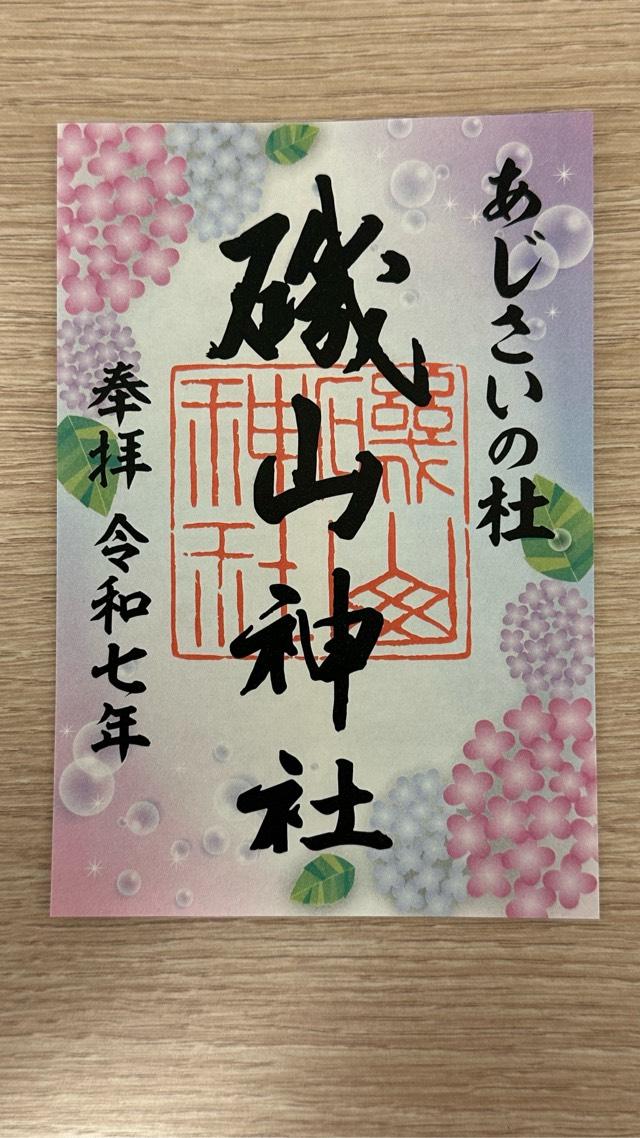 あじさいの杜
磯山神社
磯山神社
奉拝 令和七年